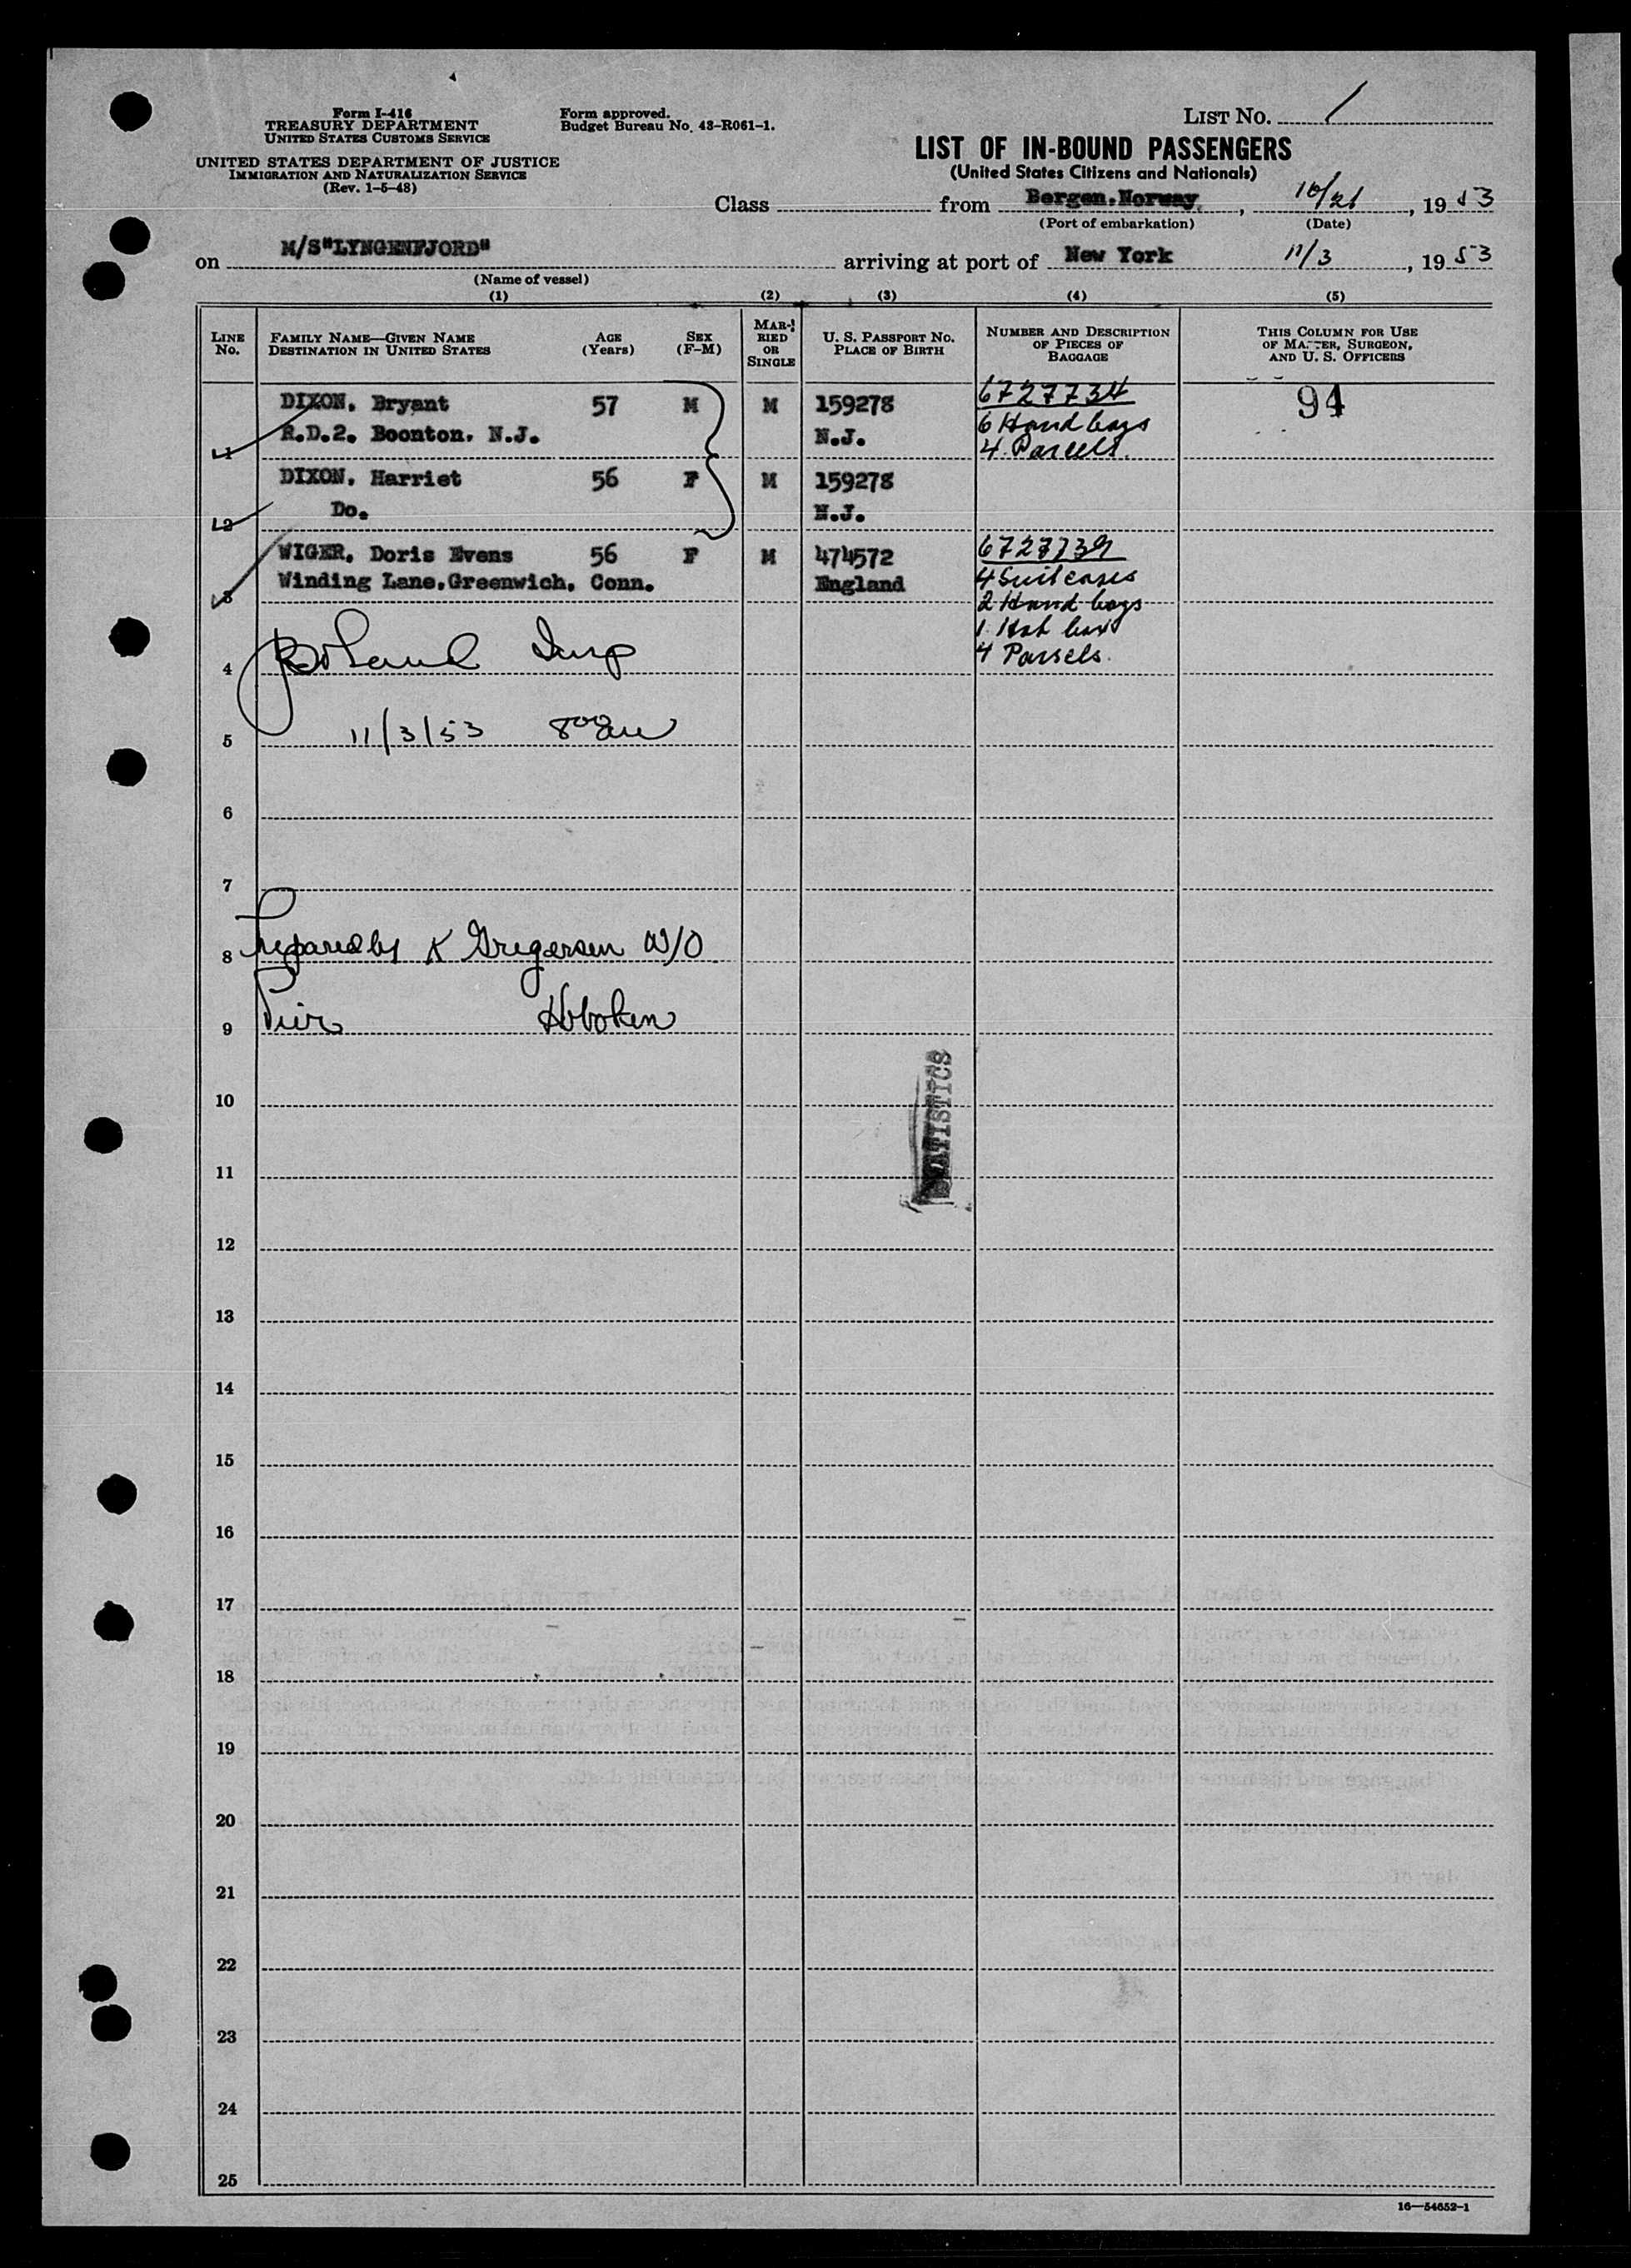 Form I-416
TREASURY DEPARTMENT
UNITED STATES CUSTOMS SERVICE
UNITED STATES DEPARTMENT OF JUSTICE
IMMIGRATION AND NATURALIZATION SERVICE
(Rev. 1-5-48)
Form approved.
Budget Bureau No. 43-R061-1.
LIST NO. 1
LIST OF IN-BOUND PASSENGERS
(United States Citizens and Nationals)
Class from Bergen.Norway, 10/21, 1953
(Port of embarkation) (Date)
on M/S"LYNGENFJORD" arriving at port of New York 11/3, 1953
(Name of vessel)
(1) (2) (3) (4) (5)
LINE No. FAMILY NAME—GIVEN NAME DESTINATION IN UNITED STATES AGE (Years) SEX (F-M) MARRIED OR SINGLE U. S. PASSPORT NO. PLACE OF BIRTH NUMBER AND DESCRIPTION OF PIECES OF BAGGAGE THIS COLUMN FOR USE OF MASTER, SURGEON, AND U. S. OFFICERS
DIXON, Bryant 57 M M 159278 6727734 94
R.D.2. Boonton. N.J. N.J. 6 Hand bags
1 4 Parcels.
DIXON, Harriet 56 F M 159278
2 Do. N.J.
WIGER, Doris Evens 56 F M 474572 6727739
Winding Lane.Greenwich, Conn. England 4 Suitcases
3 2 Hand bags
1 Hat box
4 Insp 4 Parsels.
5 11/3/53 8 00 am
6
7
8 Prepared by K Gregersen W/O
9 Pier Hoboken
10
11
12
13
14
15
16
17
18
19
20
21
22
23
24
25
16—54652-1